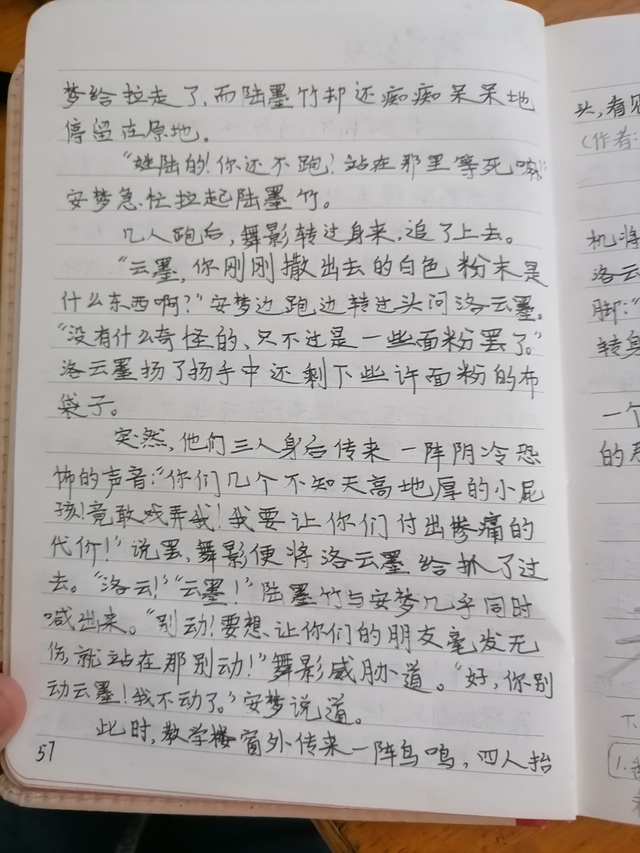 梦给拉走了,而陆墨竹却还痴痴呆呆地
停留在原地。
“姓陆的!你还不跑!站在那里等死嘛!”
安梦急忙拉起陆墨竹。
几人跑后,舞影转过身来,追了上去。
“云墨,你刚刚撒出去的白色粉末是
什么东西啊?”安梦边跑边转过头问洛云墨。
“没有什么奇怪的、只不过是一些面粉罢了。”
洛云墨扬了扬手中还剩下些许面粉的布
袋子。
突然,他们三人身后传来一阵阴冷恐
怖的声音:“你们几个不知天高地厚的小屁
孩!竟敢戏弄我!我要让你们付出惨痛的
代价!”说罢,舞影便将洛云墨给抓了过
去。“洛云!”“云墨!”陆墨竹与安梦几乎同时
喊出来。“别动!要想让你们的朋友毫发无
伤,就站在那别动!”舞影威胁道。“好,你别
动云墨!我不动了。”安梦说道。
此时,教学楼窗外传来一阵鸟鸣,四人抬
57
头,看见
(作者:
机将
洛云
脚:“
转身
一个
的
下
1.